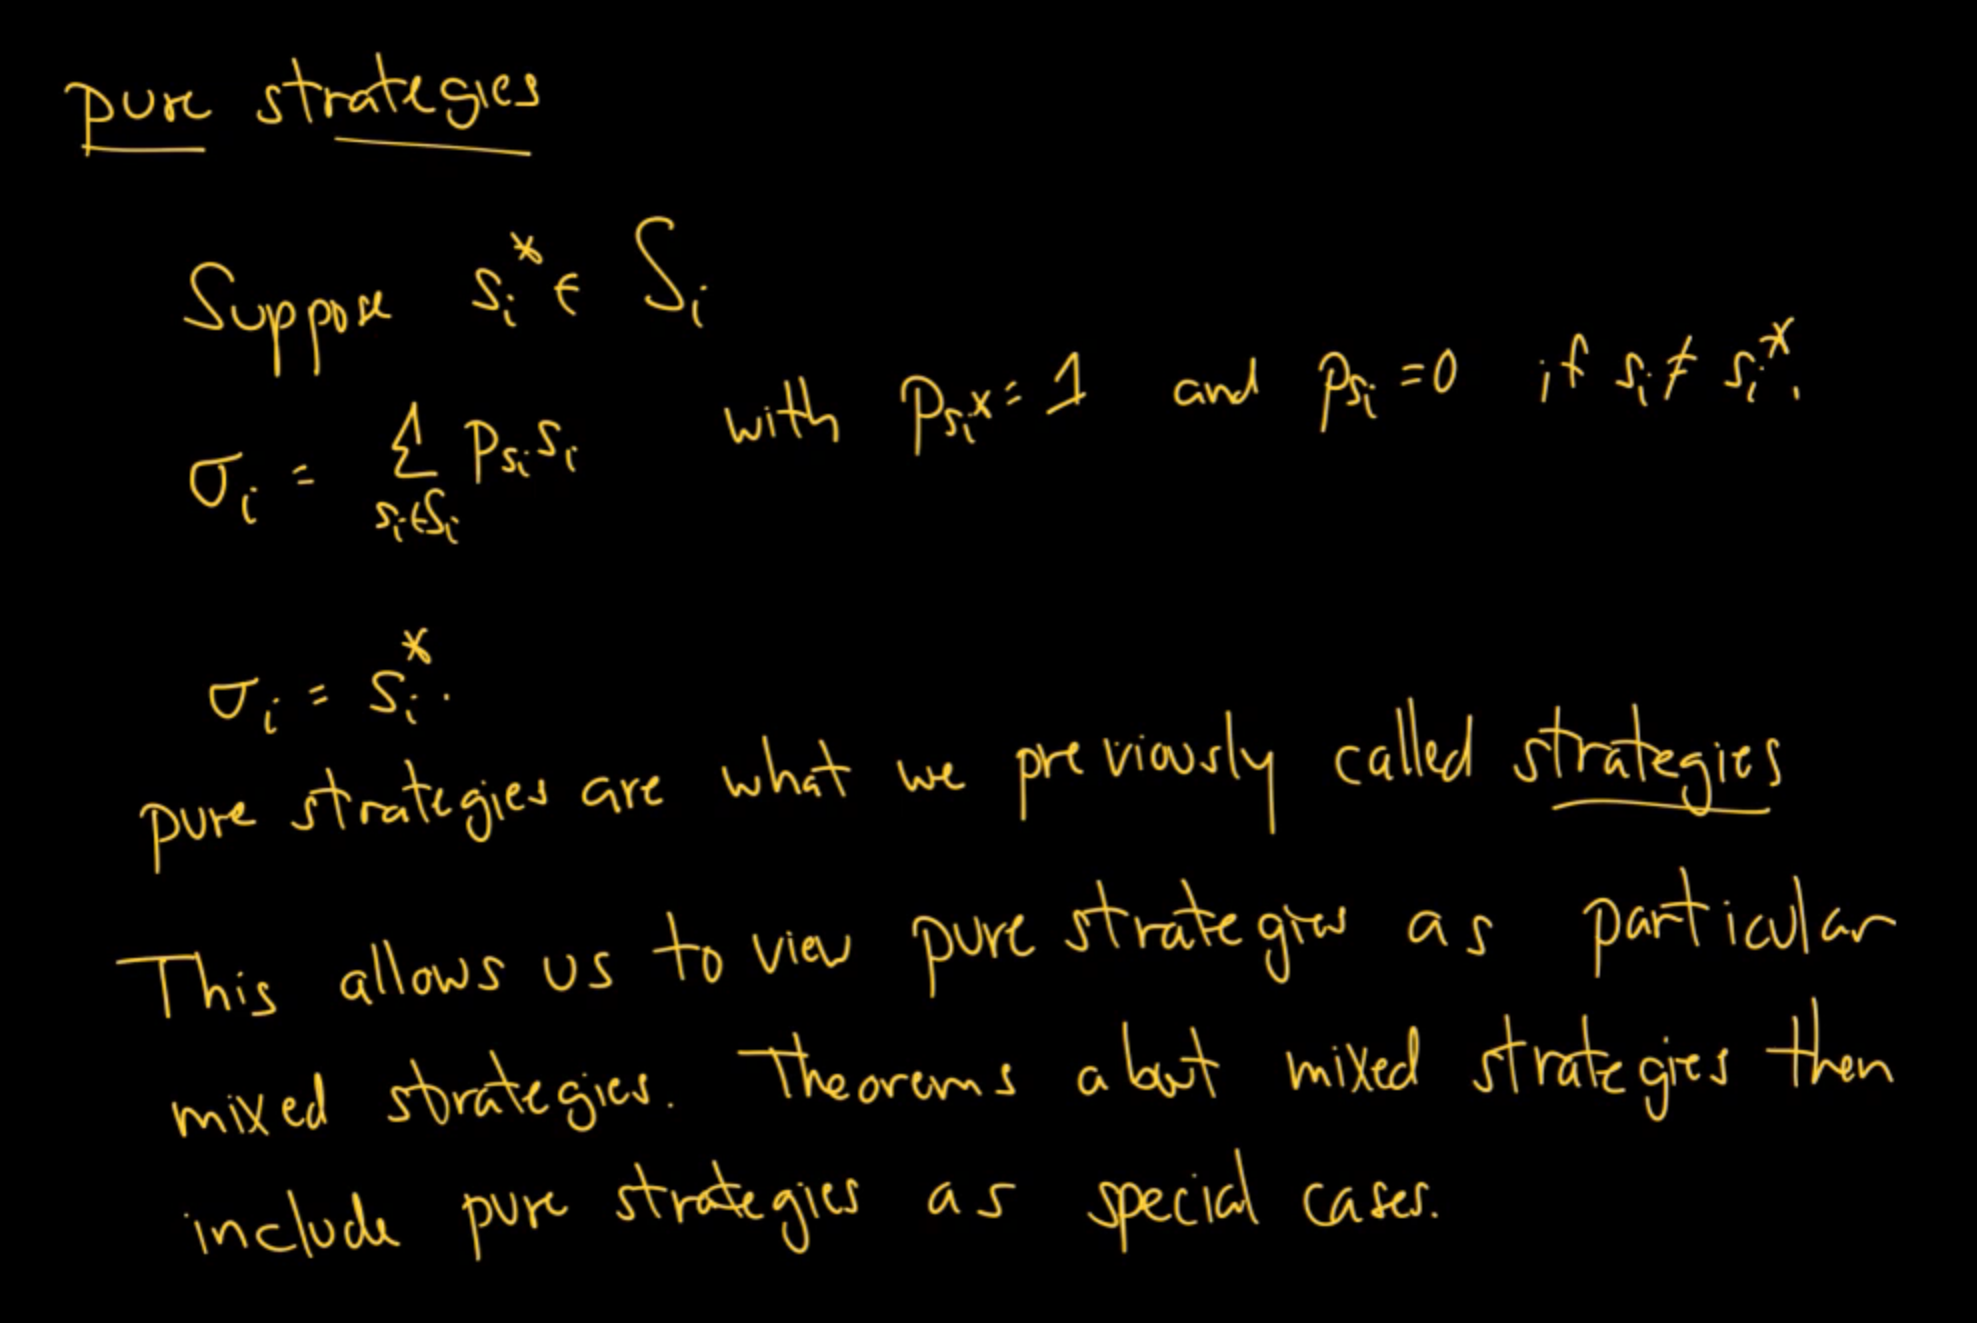 pure strategies
Suppose sᵢ* ∈ Sᵢ
σᵢ = Σ_{sᵢ∈Sᵢ} p_{sᵢ} sᵢ with p_{sᵢ*} = 1 and p_{sᵢ} = 0 if sᵢ ≠ sᵢ*.
σᵢ = sᵢ*.
pure strategies are what we previously called strategies
This allows us to view pure strategies as particular
mixed strategies. Theorems about mixed strategies then
include pure strategies as special cases.